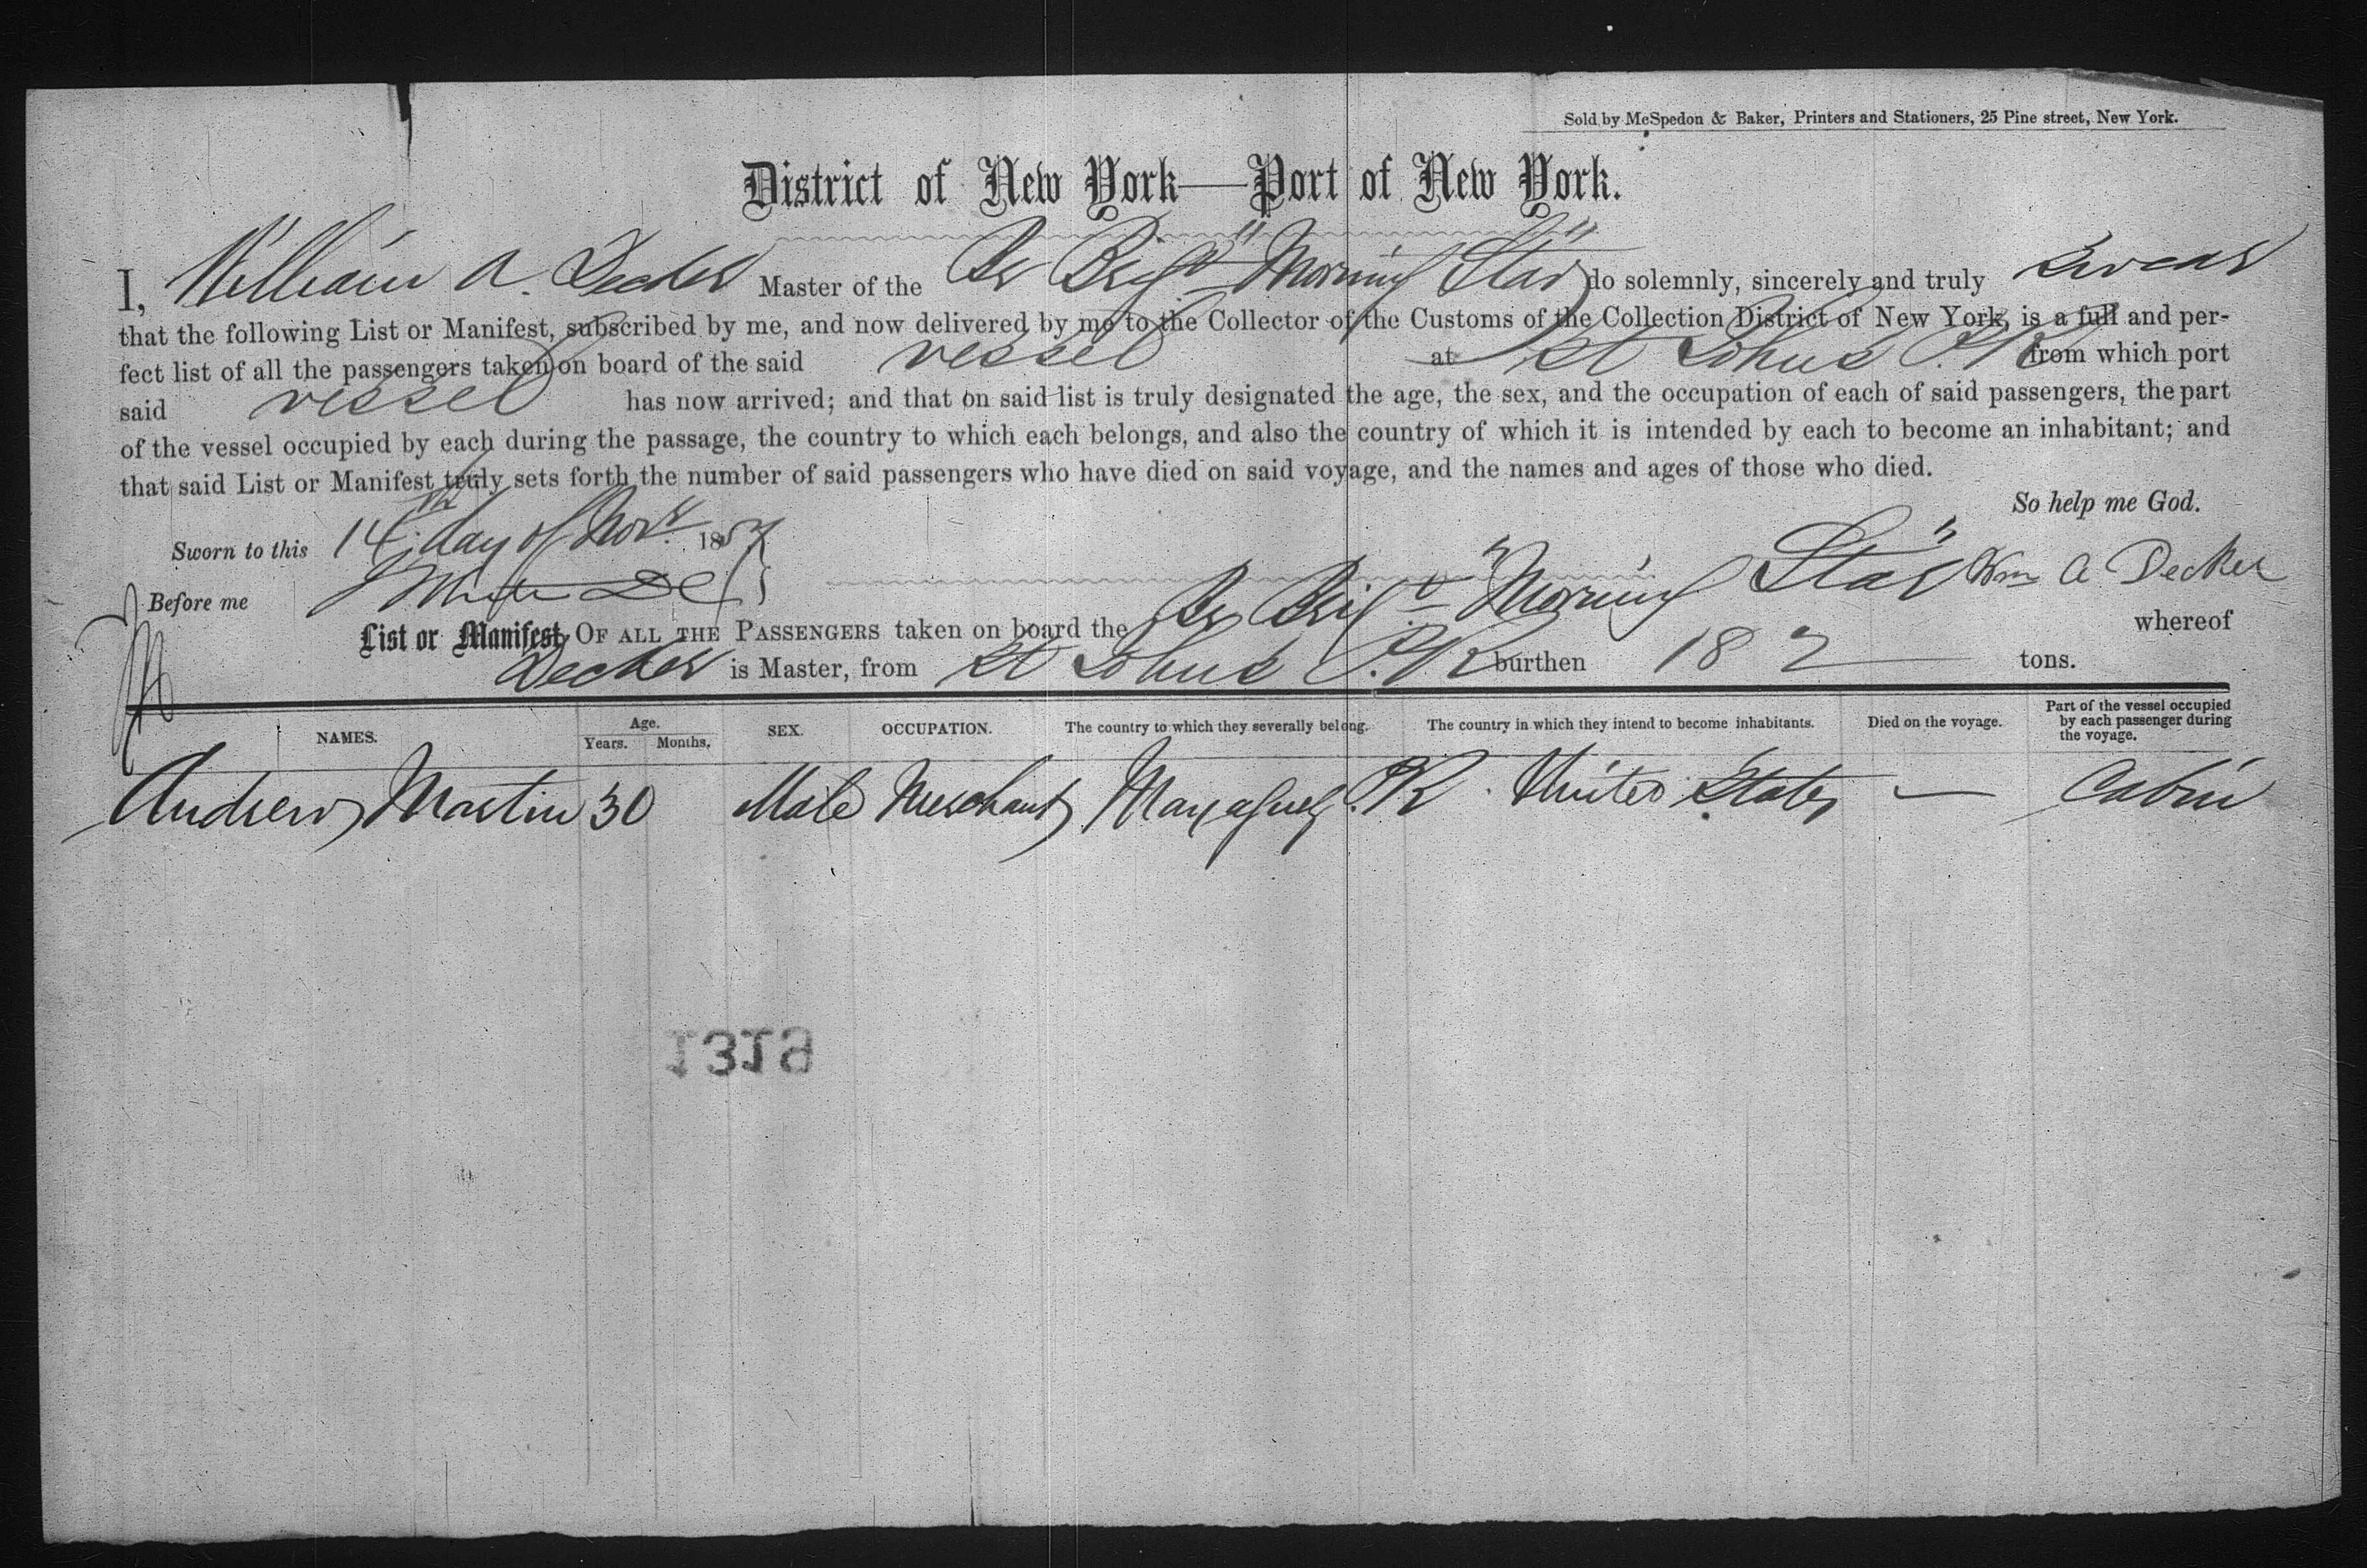 Sold by McSpedon & Baker, Printers and Stationers, 25 Pine street, New York.
District of New York—Port of New York.
I, William A. Decker Master of the Br Brig "Morning Star" do solemnly, sincerely and truly swear
that the following List or Manifest, subscribed by me, and now delivered by me to the Collector of the Customs of the Collection District of New York, is a full and per-
fect list of all the passengers taken on board of the said vessel at St Johns P.R from which port
said vessel has now arrived; and that on said list is truly designated the age, the sex, and the occupation of each of said passengers, the part
of the vessel occupied by each during the passage, the country to which each belongs, and also the country of which it is intended by each to become an inhabitant; and
that said List or Manifest truly sets forth the number of said passengers who have died on said voyage, and the names and ages of those who died.
So help me God.
Sworn to this 14th day of Novr 1857
Wm A Decker
Before me
List or Manifest, OF ALL THE PASSENGERS taken on board the Br Brig "Morning Star" whereof
Decker is Master, from St Johns P.R burthen 182 tons.
NAMES. Age. Years. Months. SEX. OCCUPATION. The country to which they severally belong. The country in which they intend to become inhabitants. Died on the voyage. Part of the vessel occupied by each passenger during the voyage.
Andrew Martin 30 Male Merchant Mayaguez P.R. United States — Cabin
1319